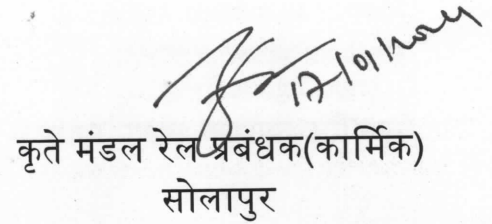 17/01/2024
कृते मंडल रेल प्रबंधक(कार्मिक)
सोलापुर